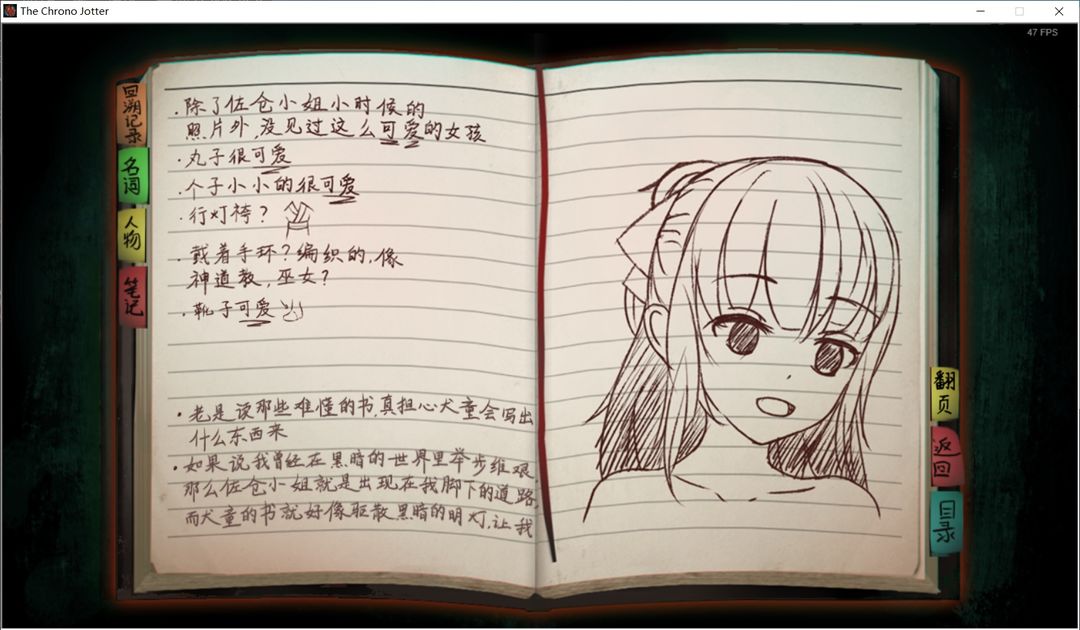 The Chrono Jotter
47 FPS
回溯记录
名词
人物
笔记
·除了佐仓小姐小时候的
照片外,没见过这么可爱的女孩
·丸子很可爱
·个子小小的很可爱
·行灯袴?
·戴着手环?编织的,像
神道教,巫女?
·靴子可爱
·老是读那些难懂的书,真担心犬童会写出
什么东西来
·如果说我曾经在黑暗的世界里举步维艰,
那么佐仓小姐就是出现在我脚下的道路,
而犬童的书就好像驱散黑暗的明灯,让我
翻页
返回
目录